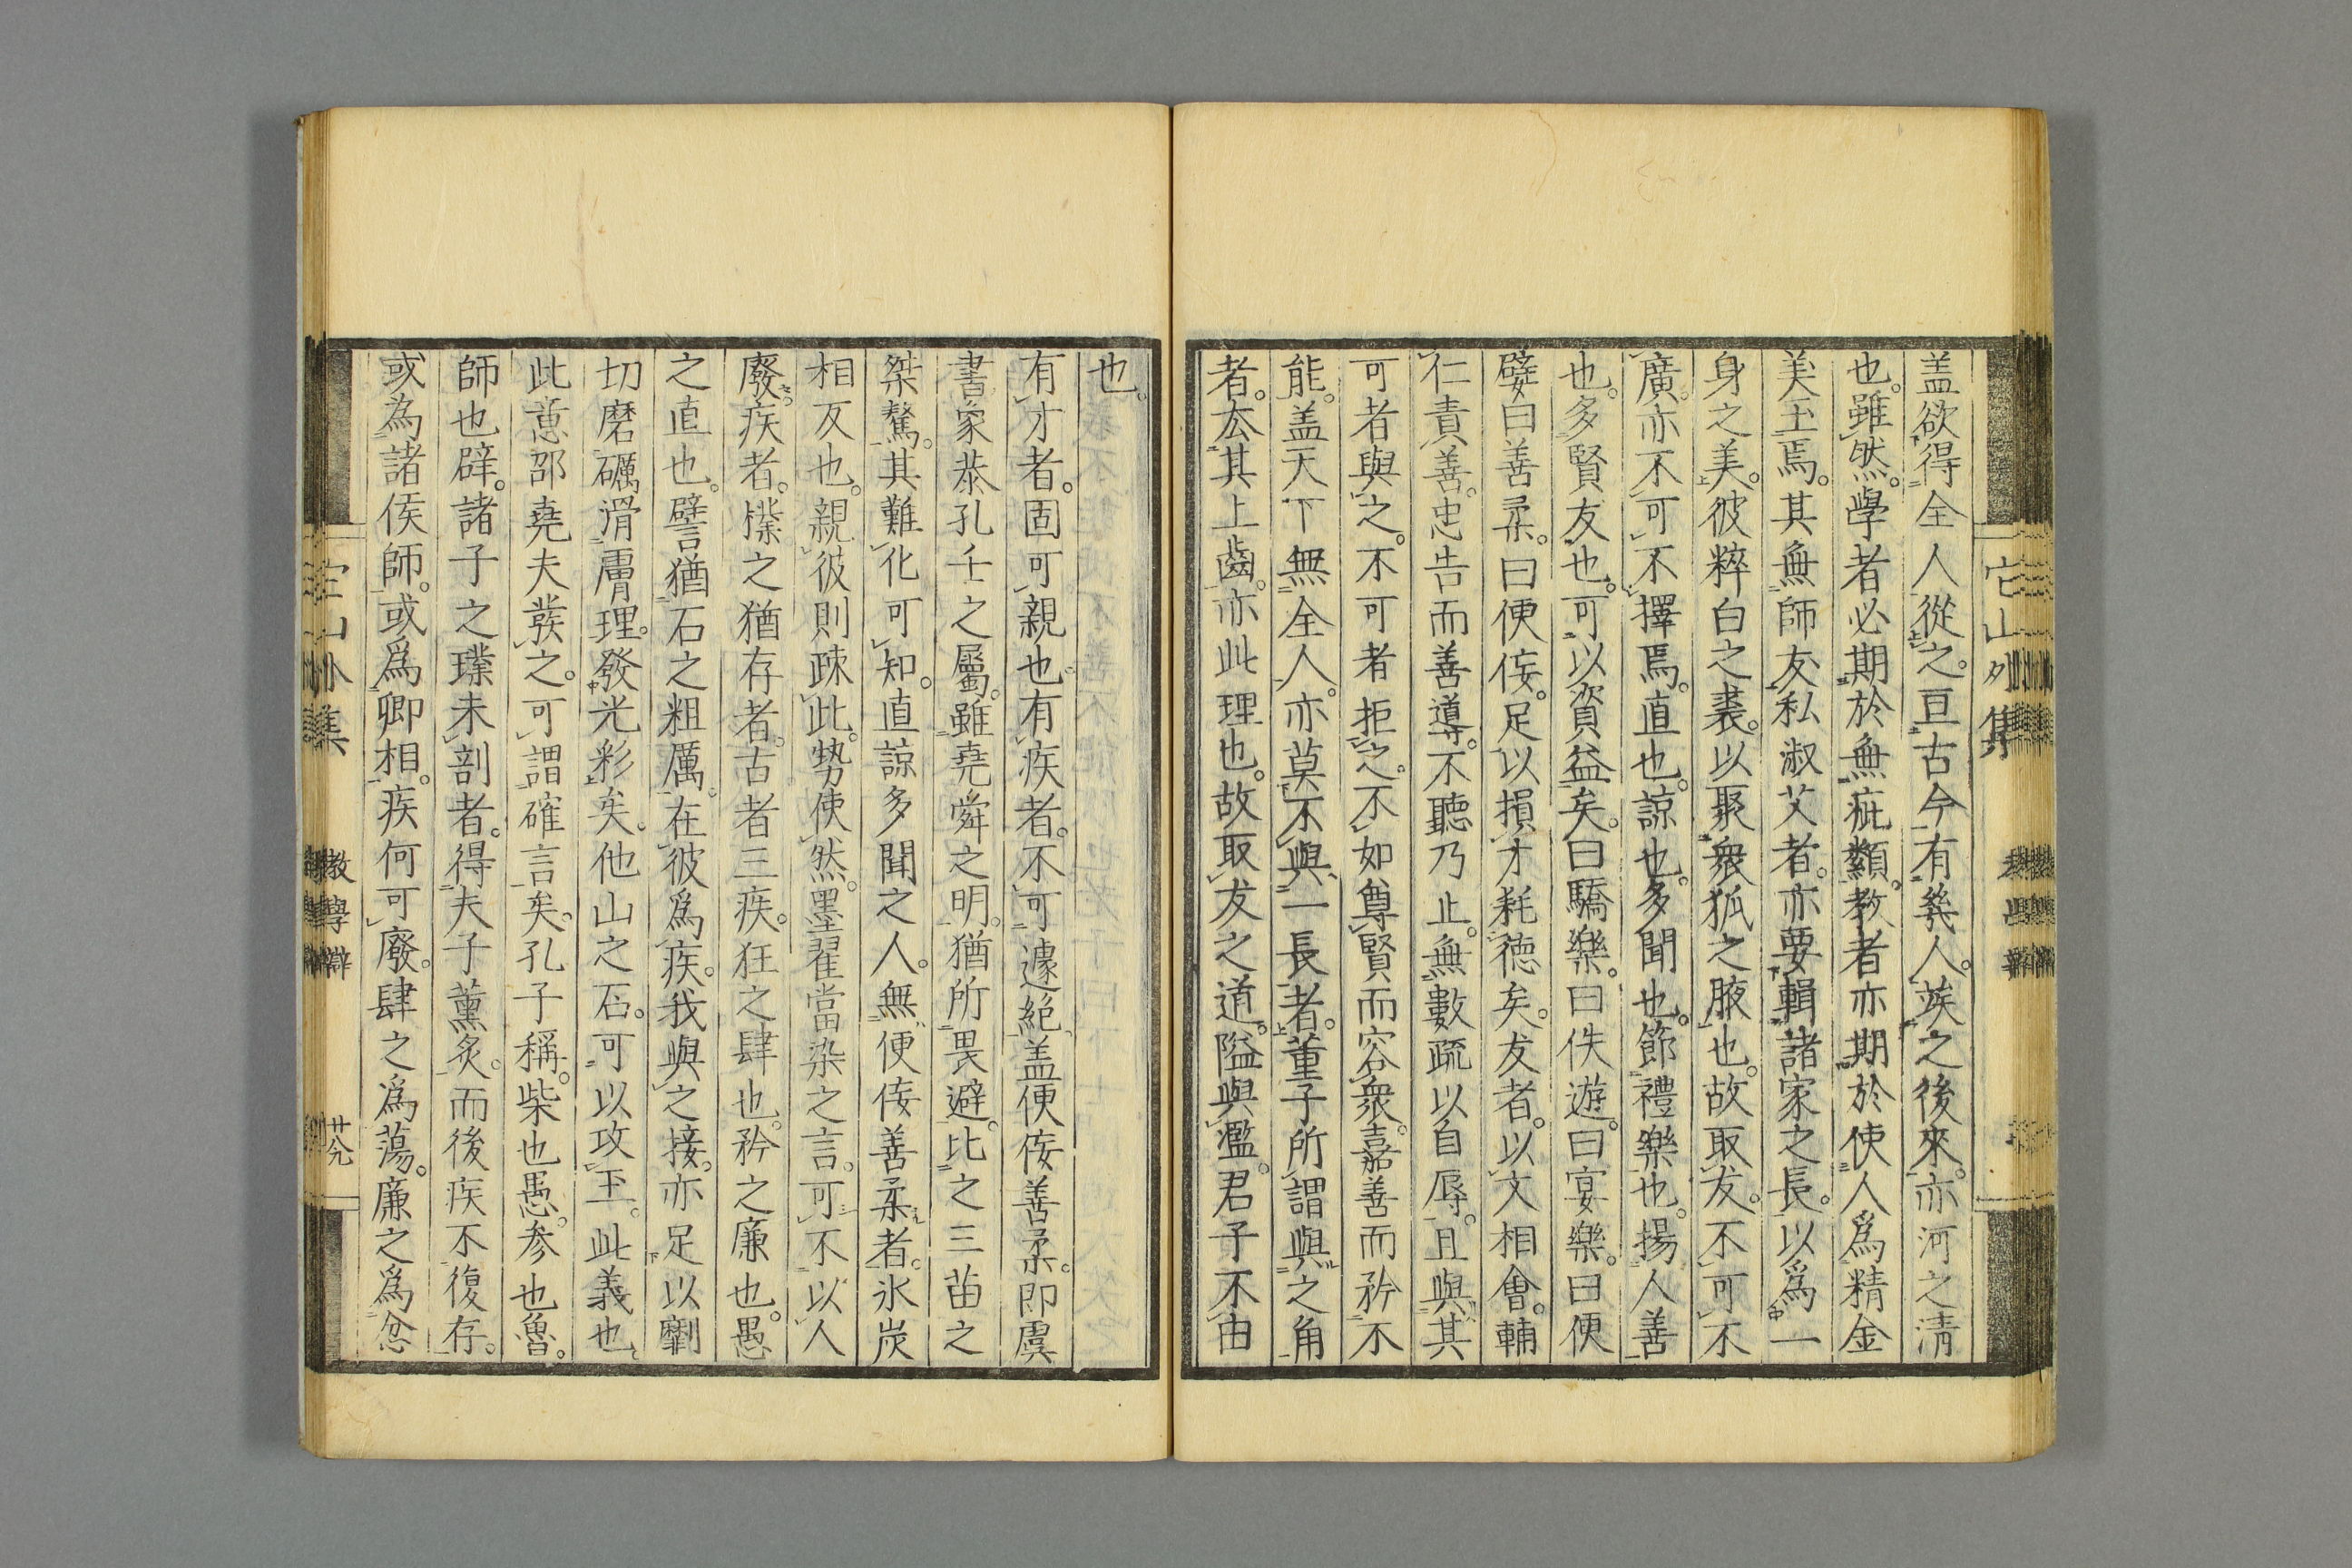 盖欲得全人從之。亘古今有幾人。竢之後來。亦河之淸
也。雖然。學者必期於無疵纇。教者亦期於使人爲精金
美玉焉。其無師友私淑艾者。亦要輯諸家之長。以爲一
身之美。彼粹白之裘。以聚衆狐之腋也。故取友。不可不
廣。亦不可不擇焉。直也。諒也。多聞也。節禮樂也。揚人善
也。多賢友也。可以資益矣。曰驕樂。曰佚遊。曰宴樂。曰便
嬖曰善柔。曰便侫。足以損才耗德矣。友者。以文相會。輔
仁責善。忠告而善導。不聽乃止。無數疏以自辱。且與其
可者與之。不可者拒之。不如尊賢而容衆。嘉善而矜不
能。盖天下無全人。亦莫不與一長者。董子所謂與之角
者。厺其上齒。亦此理也。故取友之道。隘與濫。君子不由
也。
有才者。固可親也有疾者。不可遽絶。盖便侫善柔。即虞
書象恭孔壬之屬。雖堯舜之明。猶所畏避。比之三苗之
桀驁。其難化可知。直諒多聞之人。無便侫善柔者。氷炭
相反也。親彼則疎此。勢使然。墨翟當染之言。可不以人
廢。疾者。檃之猶存者。古者三疾。狂之肆也。矜之廉也。愚
之直也。譬猶石之粗厲。在彼爲疾。我與之接。亦足以劘
切磨礪滑膚理。發光彩矣。他山之石。可以攻玉。此義也
此意邵堯夫發之。可謂確言矣。孔子稱。柴也愚。参也魯。
師也辟。諸子之璞未剖者。得夫子薫炙。而後疾不復存。
或為諸侯師。或爲卿相。疾何可廢。肆之爲蕩。廉之爲忿
它山外集
教學辯
廿九